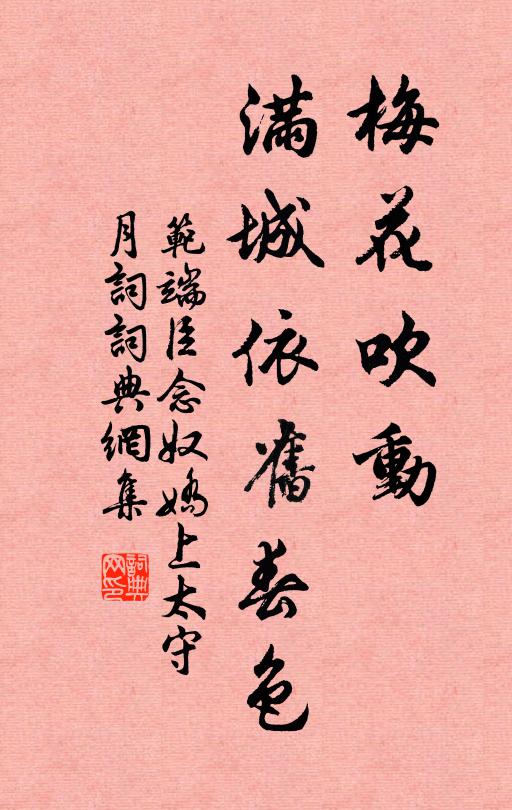 梅花吹動
滿城依舊春色
範端臣念奴嬌上太守
月詞詞典網集
詞典网印